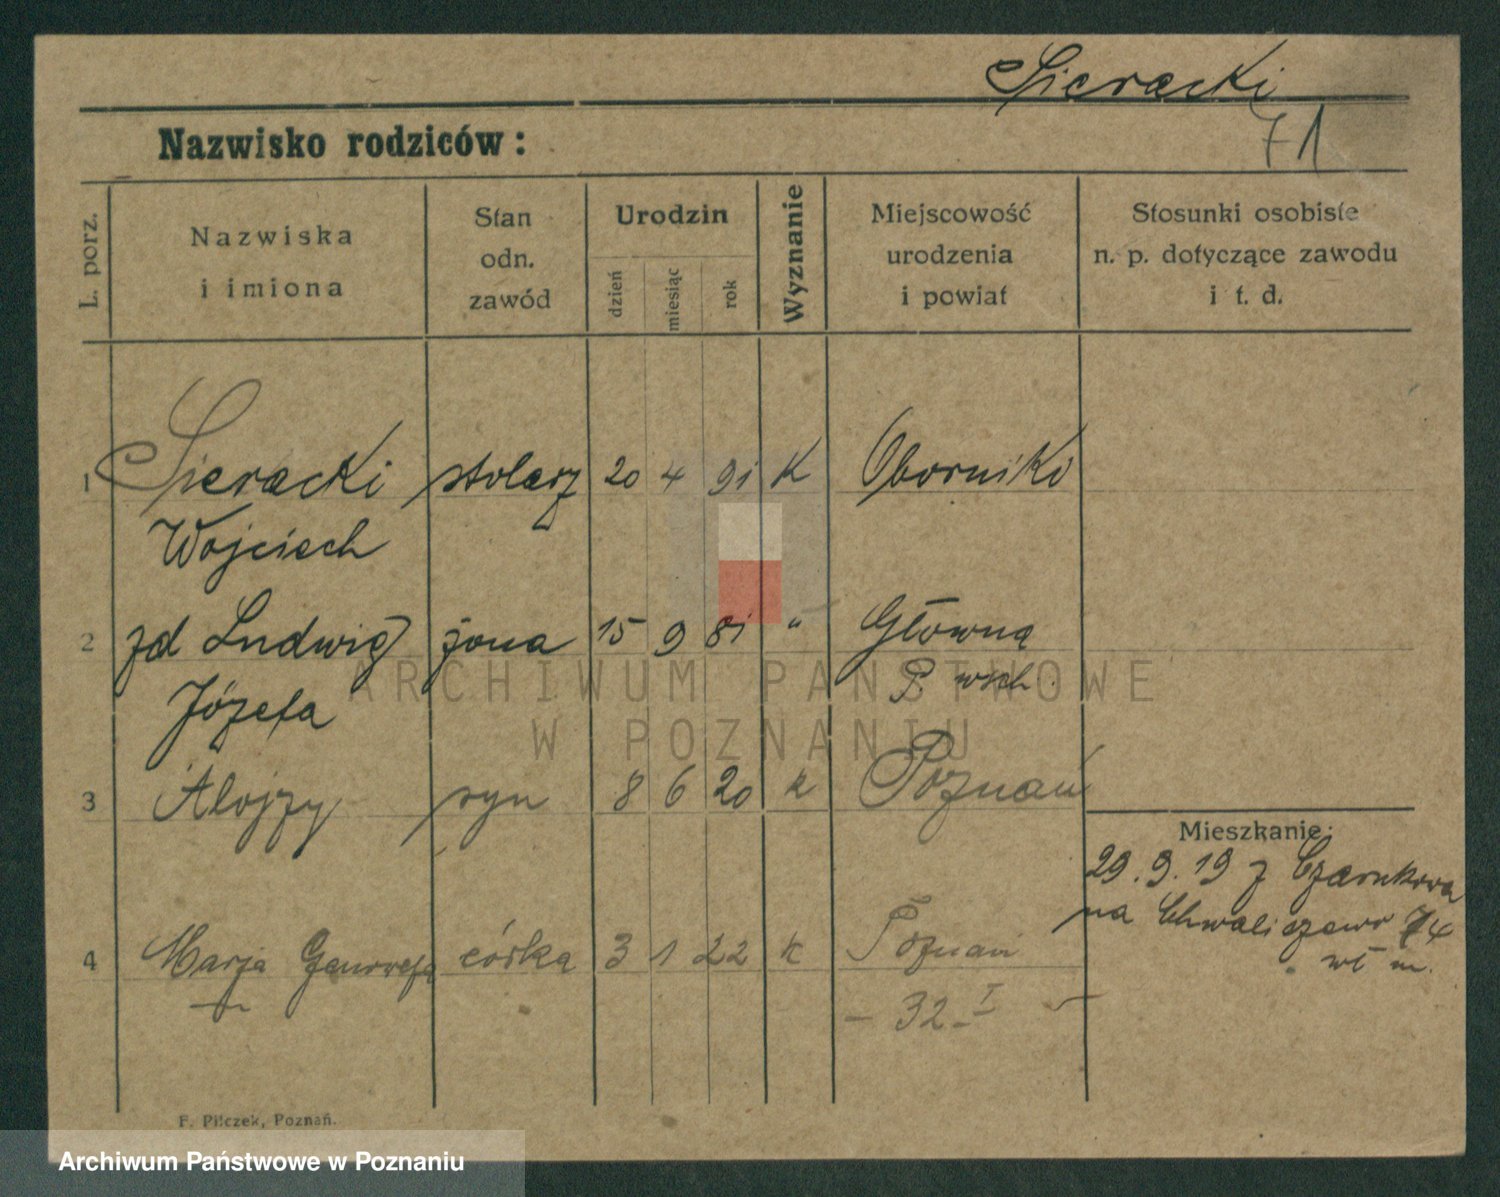 Sieracki
71
Nazwisko rodziców:
L. porz.
Nazwiska
i imiona
Stan
odn.
zawód
Urodzin
dzień
miesiąc
rok
Wyznanie
Miejscowość
urodzenia
i powiat
Stosunki osobiste
n. p. dotyczące zawodu
i t. d.
1 Sieracki stolarz 20 4 91 K Oborniki
Wojciech
2 zd Ludwig żona 15 9 81 " Główna
P. wsch.
Józefa
3 Alojzy syn 8 6 20 k Poznań
Mieszkanie:
29.9.19 z Czarnkowa
na Chwaliszewo 74
wł m.
4 Marja Genowefa córka 3 1 22 k Poznań
- 32 - I
F. Pilczek, Poznań.
ARCHIWUM PAŃSTWOWE
W POZNANIU
Archiwum Państwowe w Poznaniu